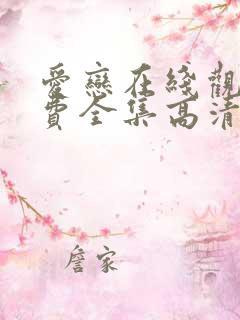 愛戀在綫觀
費全集高清
詹家